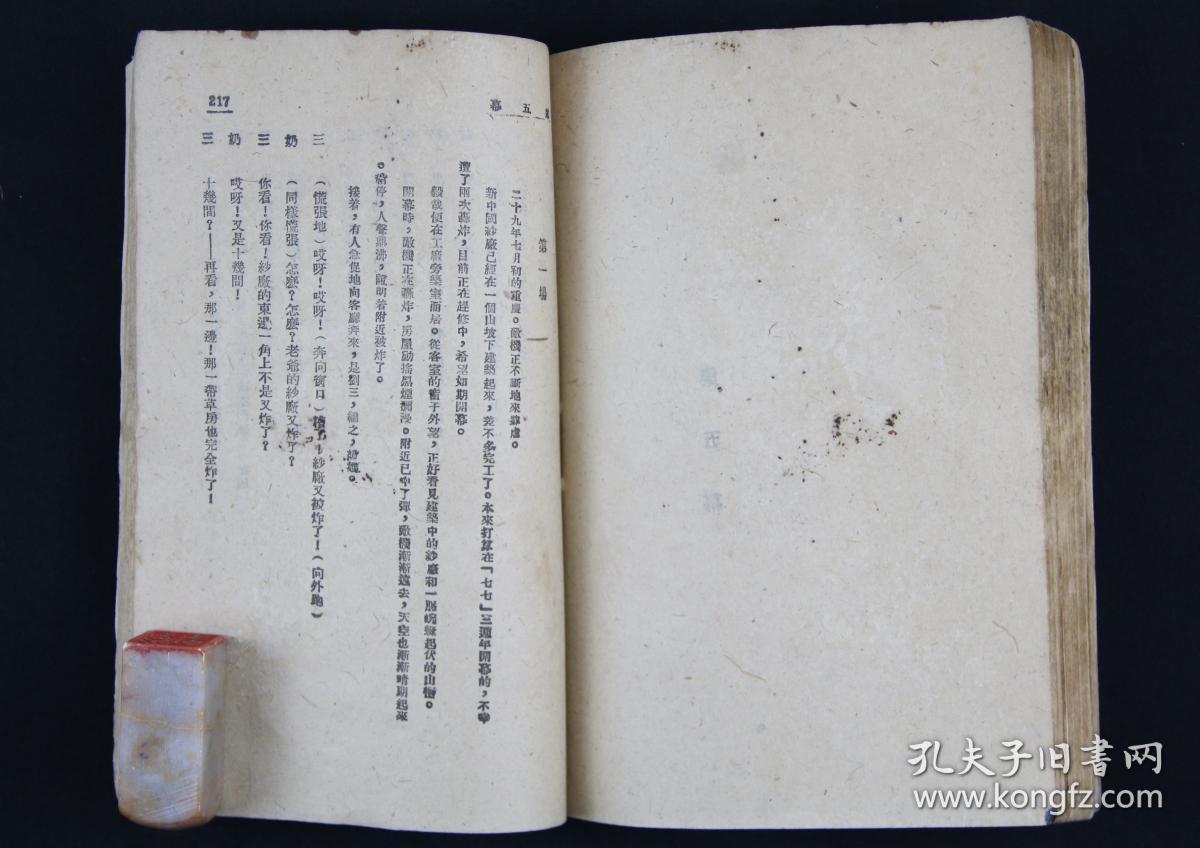 五幕
217
第一場
二十九年七月初的重慶。敵機正不斷地來肆虐。
新中國紗廠已經在一個山坡下建築起來，差不多完工了。本來打算在「七七」三週年開幕的，不幸
遭了兩次轟炸，目前正在趕修中，希望如期開幕。
毅哉便在工廠旁築室而居。從客室的窗子外望，正好看見建築中的紗廠和一脈蜿蜒起伏的山巒。
開幕時，敵機正在轟炸，房屋動搖，煙瀰漫。附近已中了彈，敵機漸漸遠去，天空也漸漸晴朗起來
。稍停，人聲鼎沸，證明着附近被炸了。
接着，有人急促地向客廳奔來，是劉三，
三 （慌張地）哎呀！哎呀！（奔向窗口）糟了！紗廠又被炸了！（向外跑）
奶 （同樣慌張）怎麼？怎麼？老爺的紗廠又炸了？
三 你看！你看！紗廠的東邊一角上不是又炸了？
奶 哎呀！又是十幾間！
三 十幾間？——再看，那一邊！那一帶草房也完全炸了！
孔夫子旧书网
www.kongfz.com